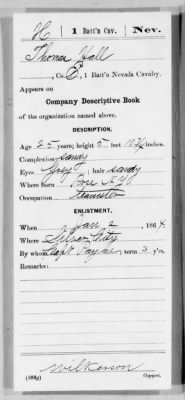 H | 1 Batt'n Cav. | Nev.
Thomas Hall
, Co. E, 1 Batt'n Nevada Cavalry.
Appears on
Company Descriptive Book
of the organization named above.
DESCRIPTION.
Age 25 years; height 5 feet inches.
Complexion Sandy
Eyes Grey; hair sandy
Where born N.Y.
Occupation Teamster
ENLISTMENT.
When Jan 2, 1864.
Where Silver City
By whom Capt. Payne; term 3 y'rs.
Remarks:
Wilkerson
(383g) Copyist.